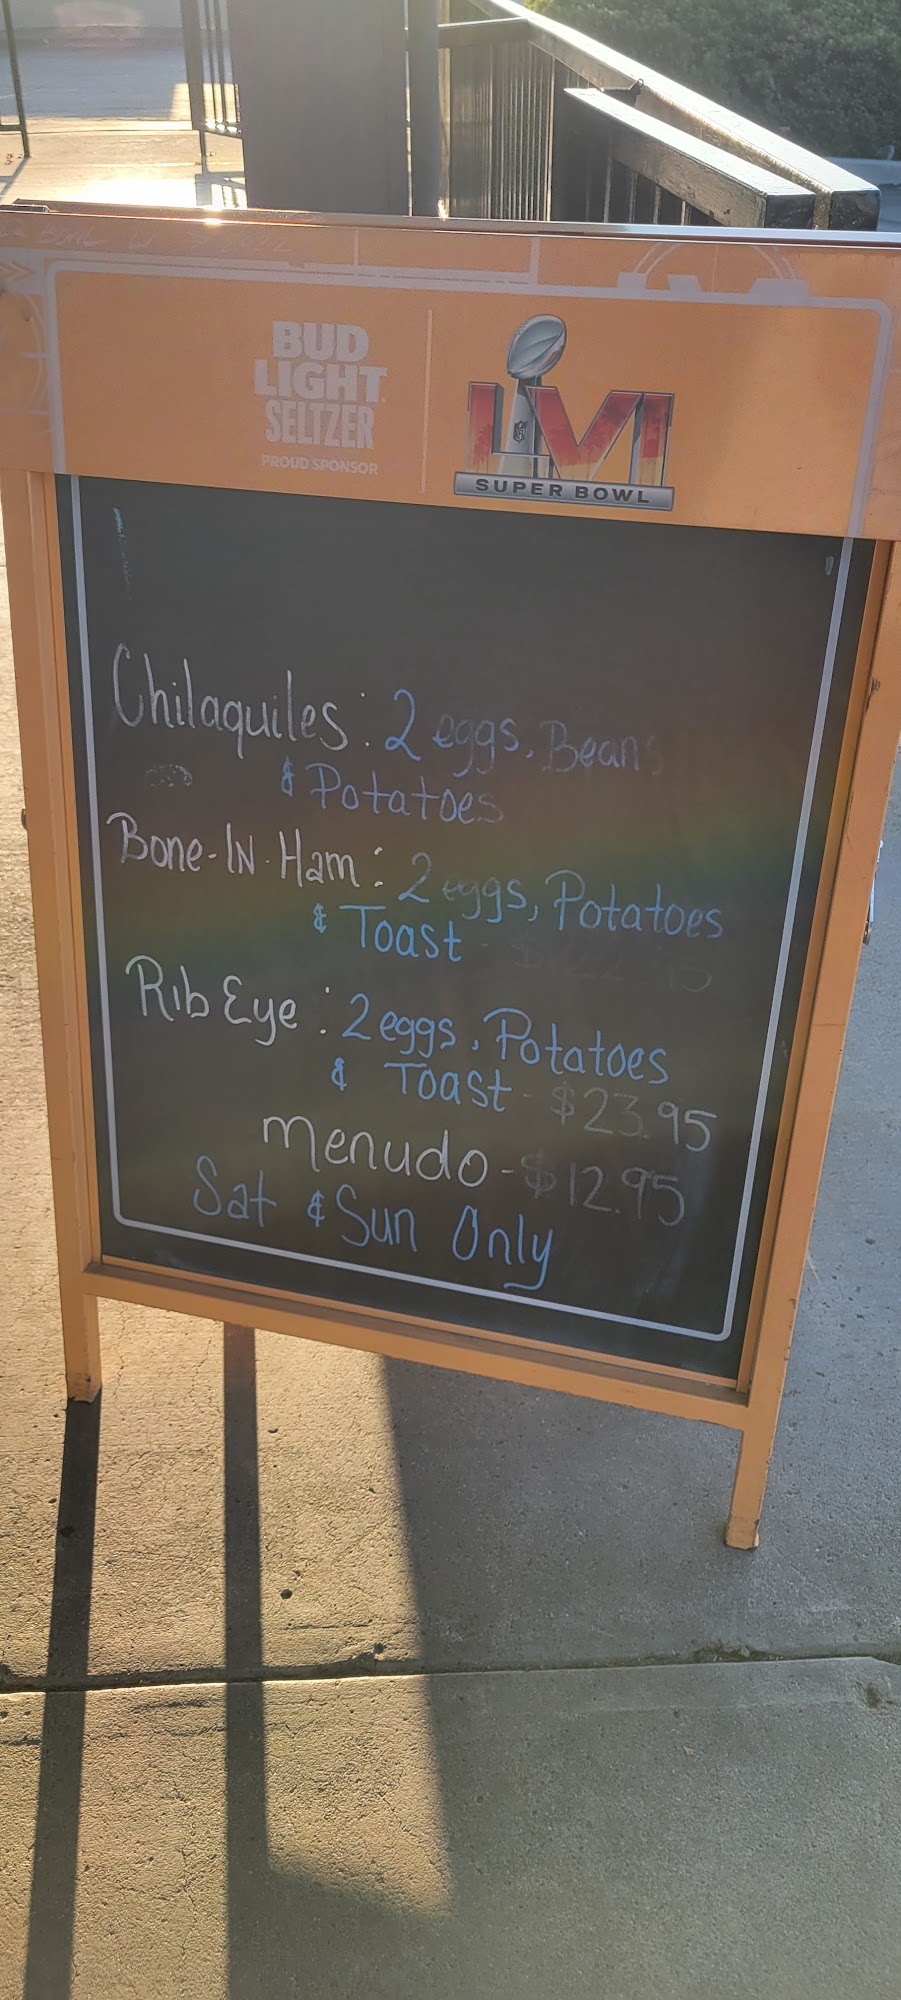 BUD
LIGHT
SELTZER
PROUD SPONSOR
LVI
SUPER BOWL
Chilaquiles: 2 eggs, Beans
& Potatoes
Bone-IN-Ham: 2 eggs, Potatoes
& Toast
Rib Eye: 2 eggs, Potatoes
& Toast - $23.95
Menudo - $12.95
Sat & Sun Only